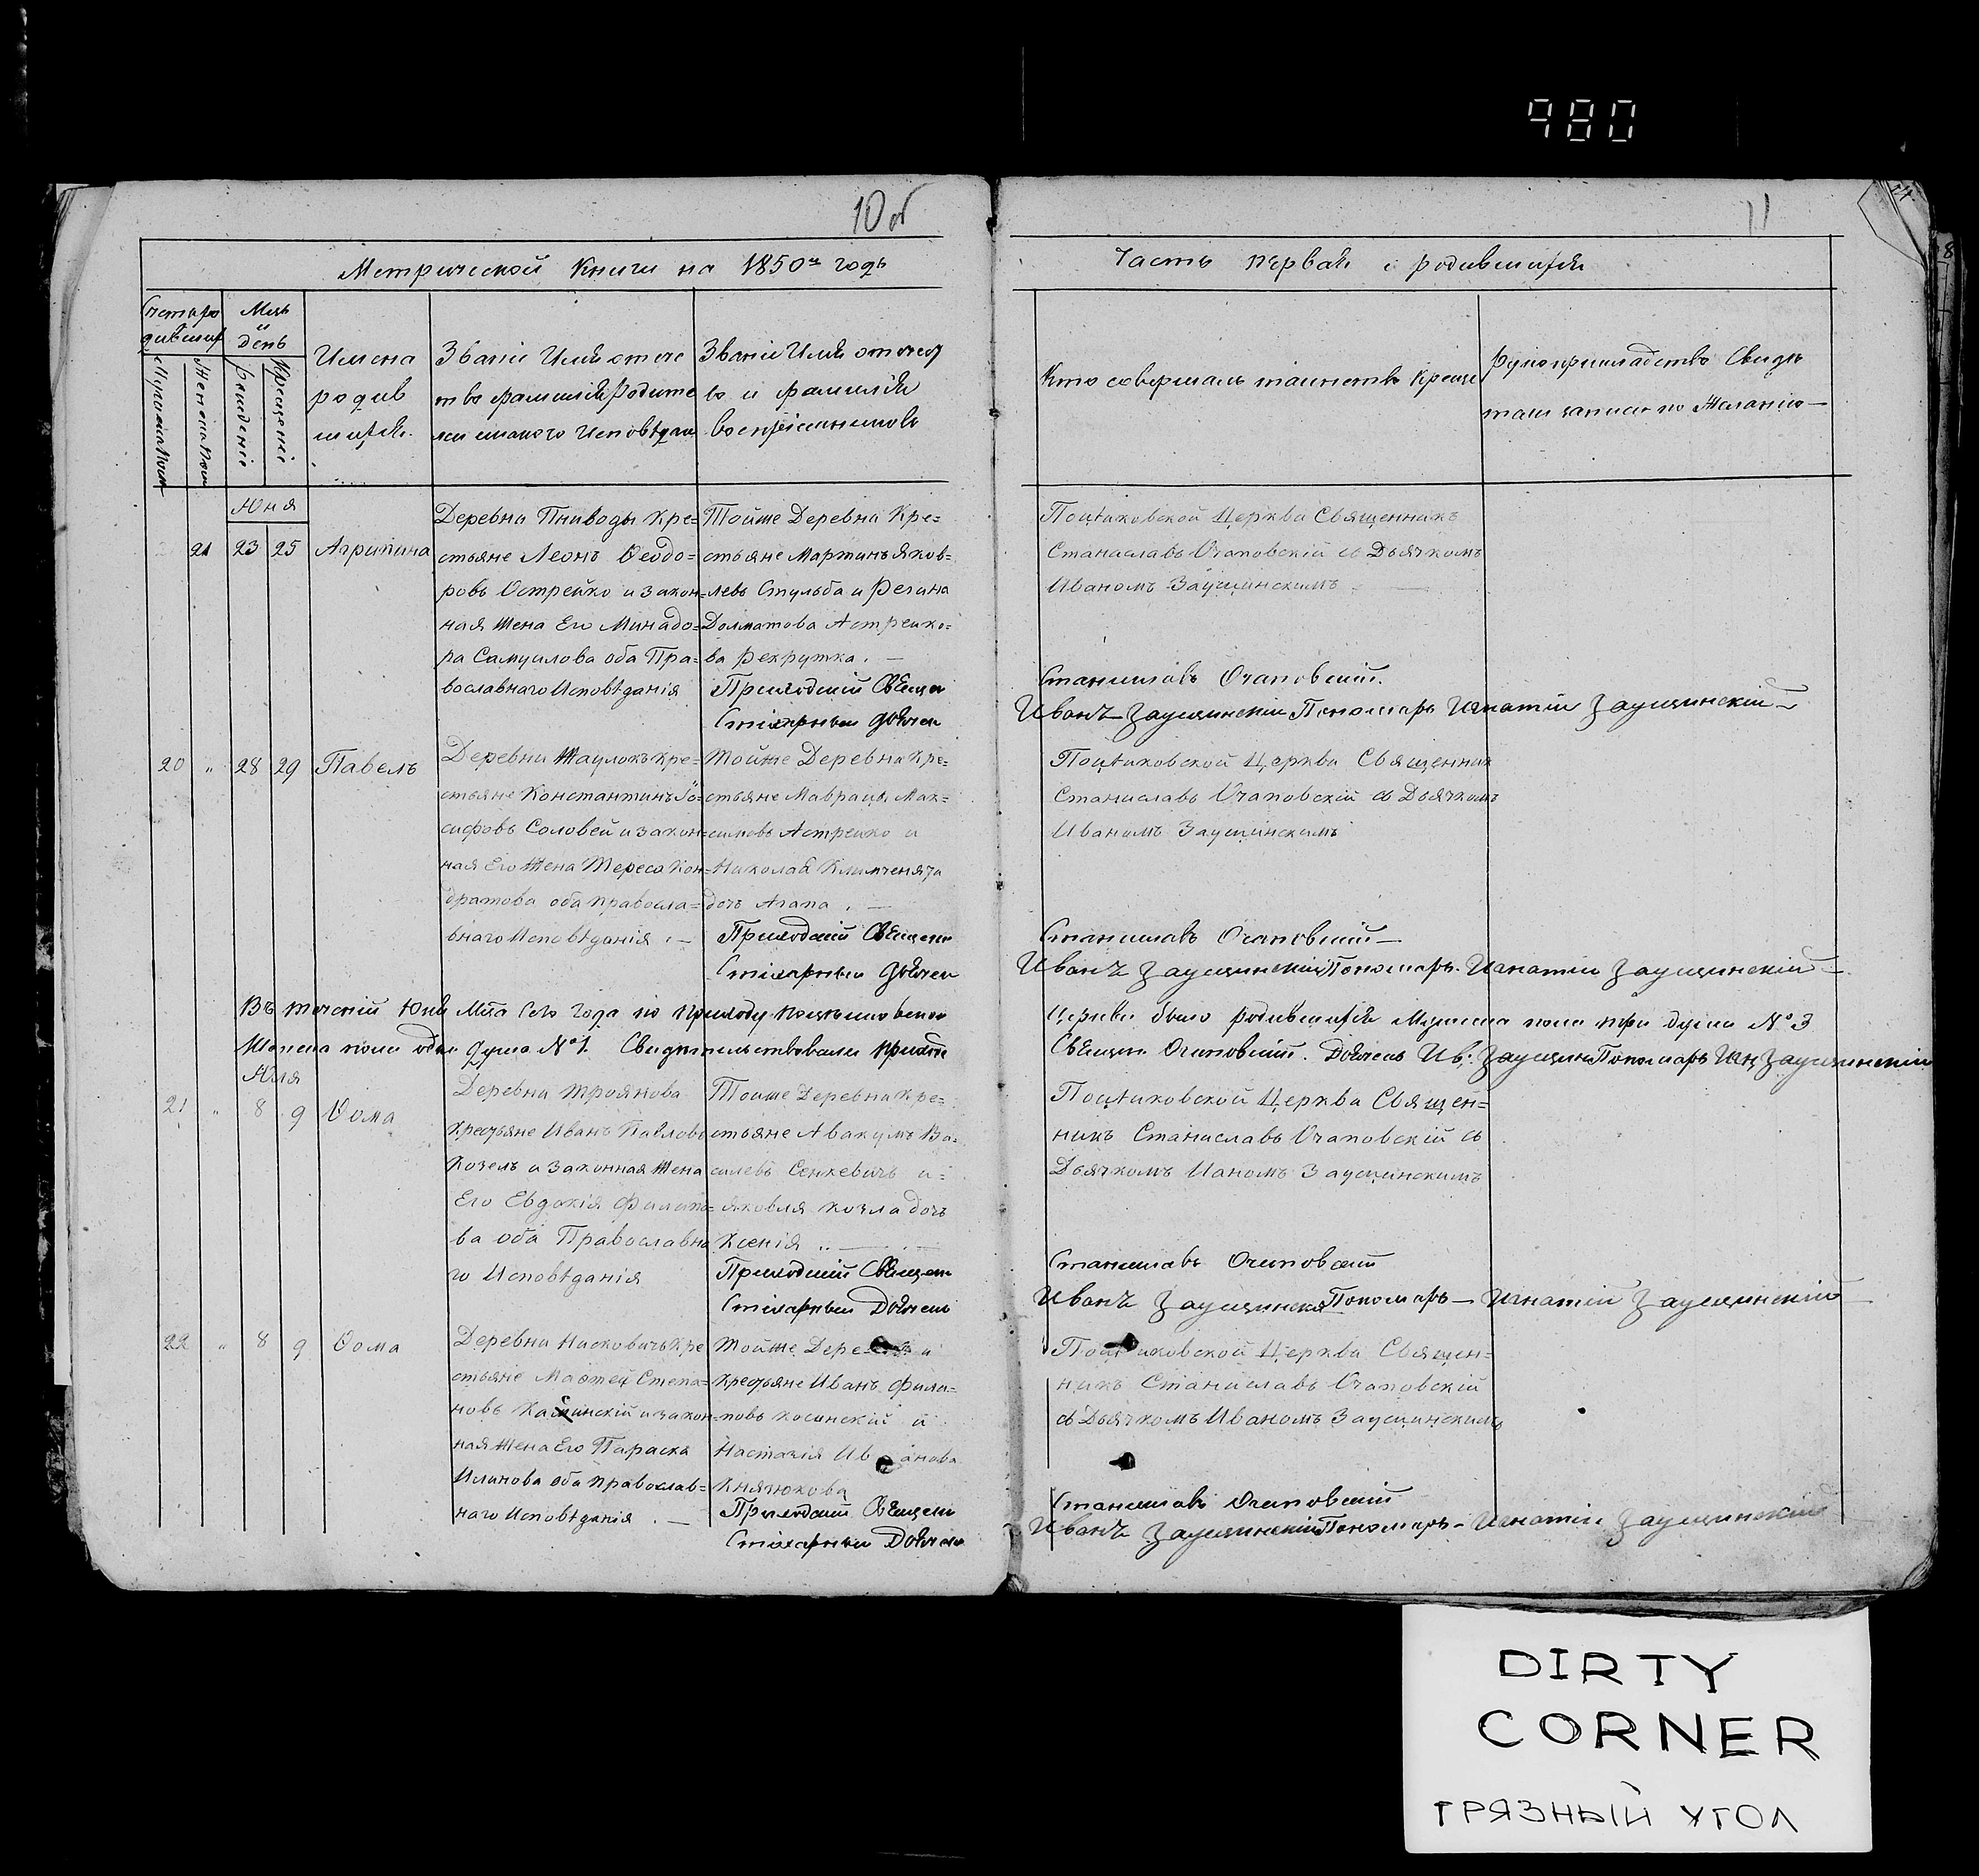 980
10 об
11
Метрической Книги на 1850й годъ
Часть первая о родившихся
Счетъ ро
дившихся
Мужеска пола
Женска пола
Мець
и
день
рожденіе
крещеніе
Имена
родив
шихся.
Званіе Имя отече
тво фамилія Родите
леи и какого Исповѣдан
Званіе Имя отечест
во и фамилія
воспріемниковъ
Кто совершалъ таинство Крещен
Рукоприкладство Свидѣ
телеи записи по Желанію
Юня
21 23 25 Агрипина
Деревни Пниводы Кре=
стьяне Леонъ Ѳеодо=
ровъ Острейко и закон=
ная жена Его Минадо=
ра Самуилова оба Пра=
вославнаго Исповѣданія
Тойже Деревни Кре=
стьяне Мартинъ Яков=
левъ Стульба и Регина
Долматова Астреико=
ва Рекрутка. —
Приходскій Священ
Стихарный дьячек
Поцѣиковской Церкви Священникъ
Станиславъ Очаповскій съ Дьячкомъ
Иваномъ Заусцинскимъ
Станиславъ Очаповскій.
Иванъ Заусцинскій Пономарь Игнатій Заусцинскій
20 „ 28 29 Павелъ
Деревни Жаулокъ Кре=
стьяне Константинъ Іо=
сифовъ Соловей и закон=
ная Его Жена Тереса Кон=
дратова оба правосла=
внаго Исповѣданія. —
Тойже Деревни Кре=
стьяне Маврацы Мак=
симовъ Астреико и
Николая Климченяти
дочь Агапа. —
Приходскій Священ
Стихарный Дьячек
Поцѣиковской Церкви Священник
Станиславъ Очаповскій съ Дьячкомъ
Иваномъ Заусцинскимъ
Станиславъ Очаповскій —
Иванъ Заусцинскій Пономарь. Игнатій Заусцинскій —
Въ теченіи Юня Мца Сего года по приходу Поцѣиковской
Церкви было родившихся Мужеска пола три души № 3
Женска пола одна душа № 1. Свидѣтельствовали приход
Священ Очаповскій. Дьячекъ Ив: Заусцин Пономарь Игн Заусцинскій
Юля
21 „ 8 9 Ѳома
Деревни Троянова
Крестьяне Иванъ Павловъ
Козелъ и Законная Жена
Его Евдокія Филипо=
ва оба Православна
го Исповѣданія
Тоиже Деревни Кре=
стьяне Авакумъ Ва=
силевъ Сенкевичъ и=
Яковля козла дочь
Ксенія
Приходскій Священ
Стихарный Дьячек
Поцѣиковской Церкви Священ=
никъ Станиславъ Очаповскій съ
Дьячкомъ Ианомъ Заусцинскимъ
Станиславъ Очаповскій
Иванъ Заусцинскій Пономарь — Игнатій Заусцинскій
22 „ 8 9 Ѳома
Деревни Насковичъ Кре
стьяне Маѳтей Степа=
новъ Касинскій и закон=
ная Жена Его Параска
Илинова оба православ=
наго Исповѣданія. —
Тойже Дере и
Крестьяне Иванъ Фили=
повъ Косинскій и
Настазія Иванова
Княжюкова
Приходскій Священ
Стихарный Дьячек
Поцѣиковской Церкви Священ=
никъ Станиславъ Очаповскій
съ Дьячкомъ Иваномъ Заусцинскимъ
Станиславъ Очаповскій
Иванъ Заусцинскій Пономарь — Игнатіи Заусцинскій
DIRTY
CORNER
ГРЯЗНЫЙ УГОЛ